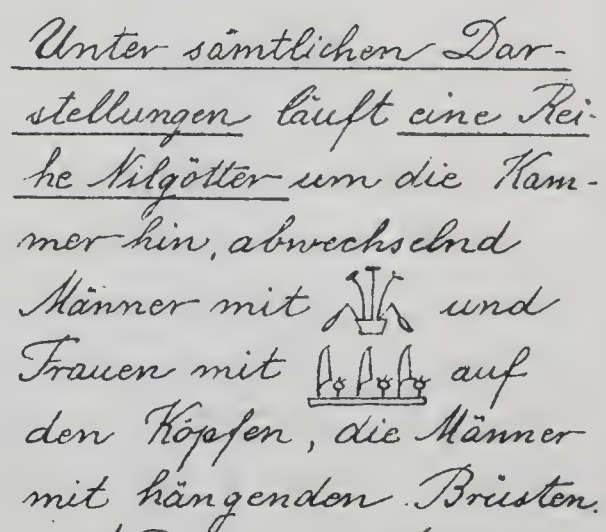 Unter sämtlichen Dar-
stellungen läuft eine Rei-
he Nilgötter um die Kam-
mer hin, abwechselnd
Männer mit und
Frauen mit auf
den Köpfen, die Männer
mit hängenden Brüsten.